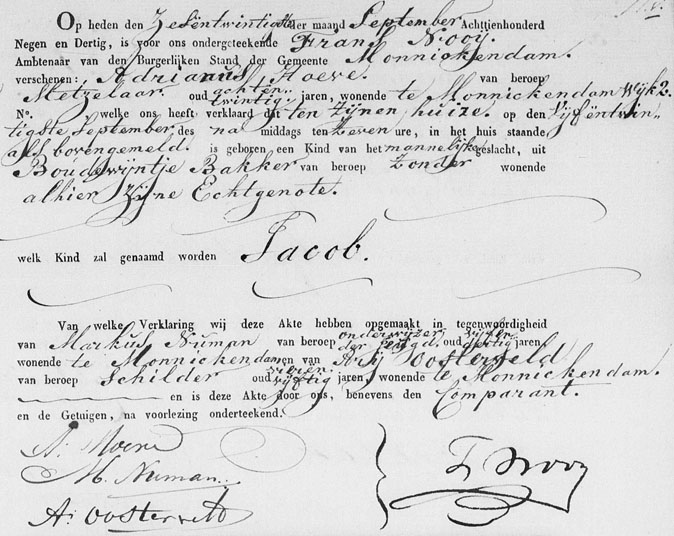 Op heden den Zesentwintigste der maand September Achttienhonderd
Negen en Dertig, is voor ons ondergeteekende Frans Nooij.
Ambtenaar van den Burgerlijken Stand der Gemeente Monnickendam.
verschenen: Adrianus Hoeve. van beroep
Metzelaar. oud achten twintig jaren, wonende te Monnickendam Wijk 2.
No. welke ons heeft verklaard dat ten Zijnen huize. op den Vijfentwin-
tigste September des na middags ten Zeven ure, in het huis staande
als bovengemeld. is geboren een Kind van het mannelijke geslacht, uit
Boudewijntje Bakker van beroep Zonder wonende
alhier Zijne Echtgenote.
welk Kind zal genaamd worden Jacob.
Van welke Verklaring wij deze Akte hebben opgemaakt in tegenwoordigheid
van Markus Numan van beroep onderwijzer der jeugd. oud dertig jaren,
wonende te Monnickendam en van Oosterveld
van beroep Schilder oud vieren vijftig jaren, wonende te Monnickendam.
en is deze Akte door ons, benevens den Comparant.
en de Getuigen, na voorlezing onderteekend.
A. Hoeve
M. Numan
F Nooij
A: Oosterveld